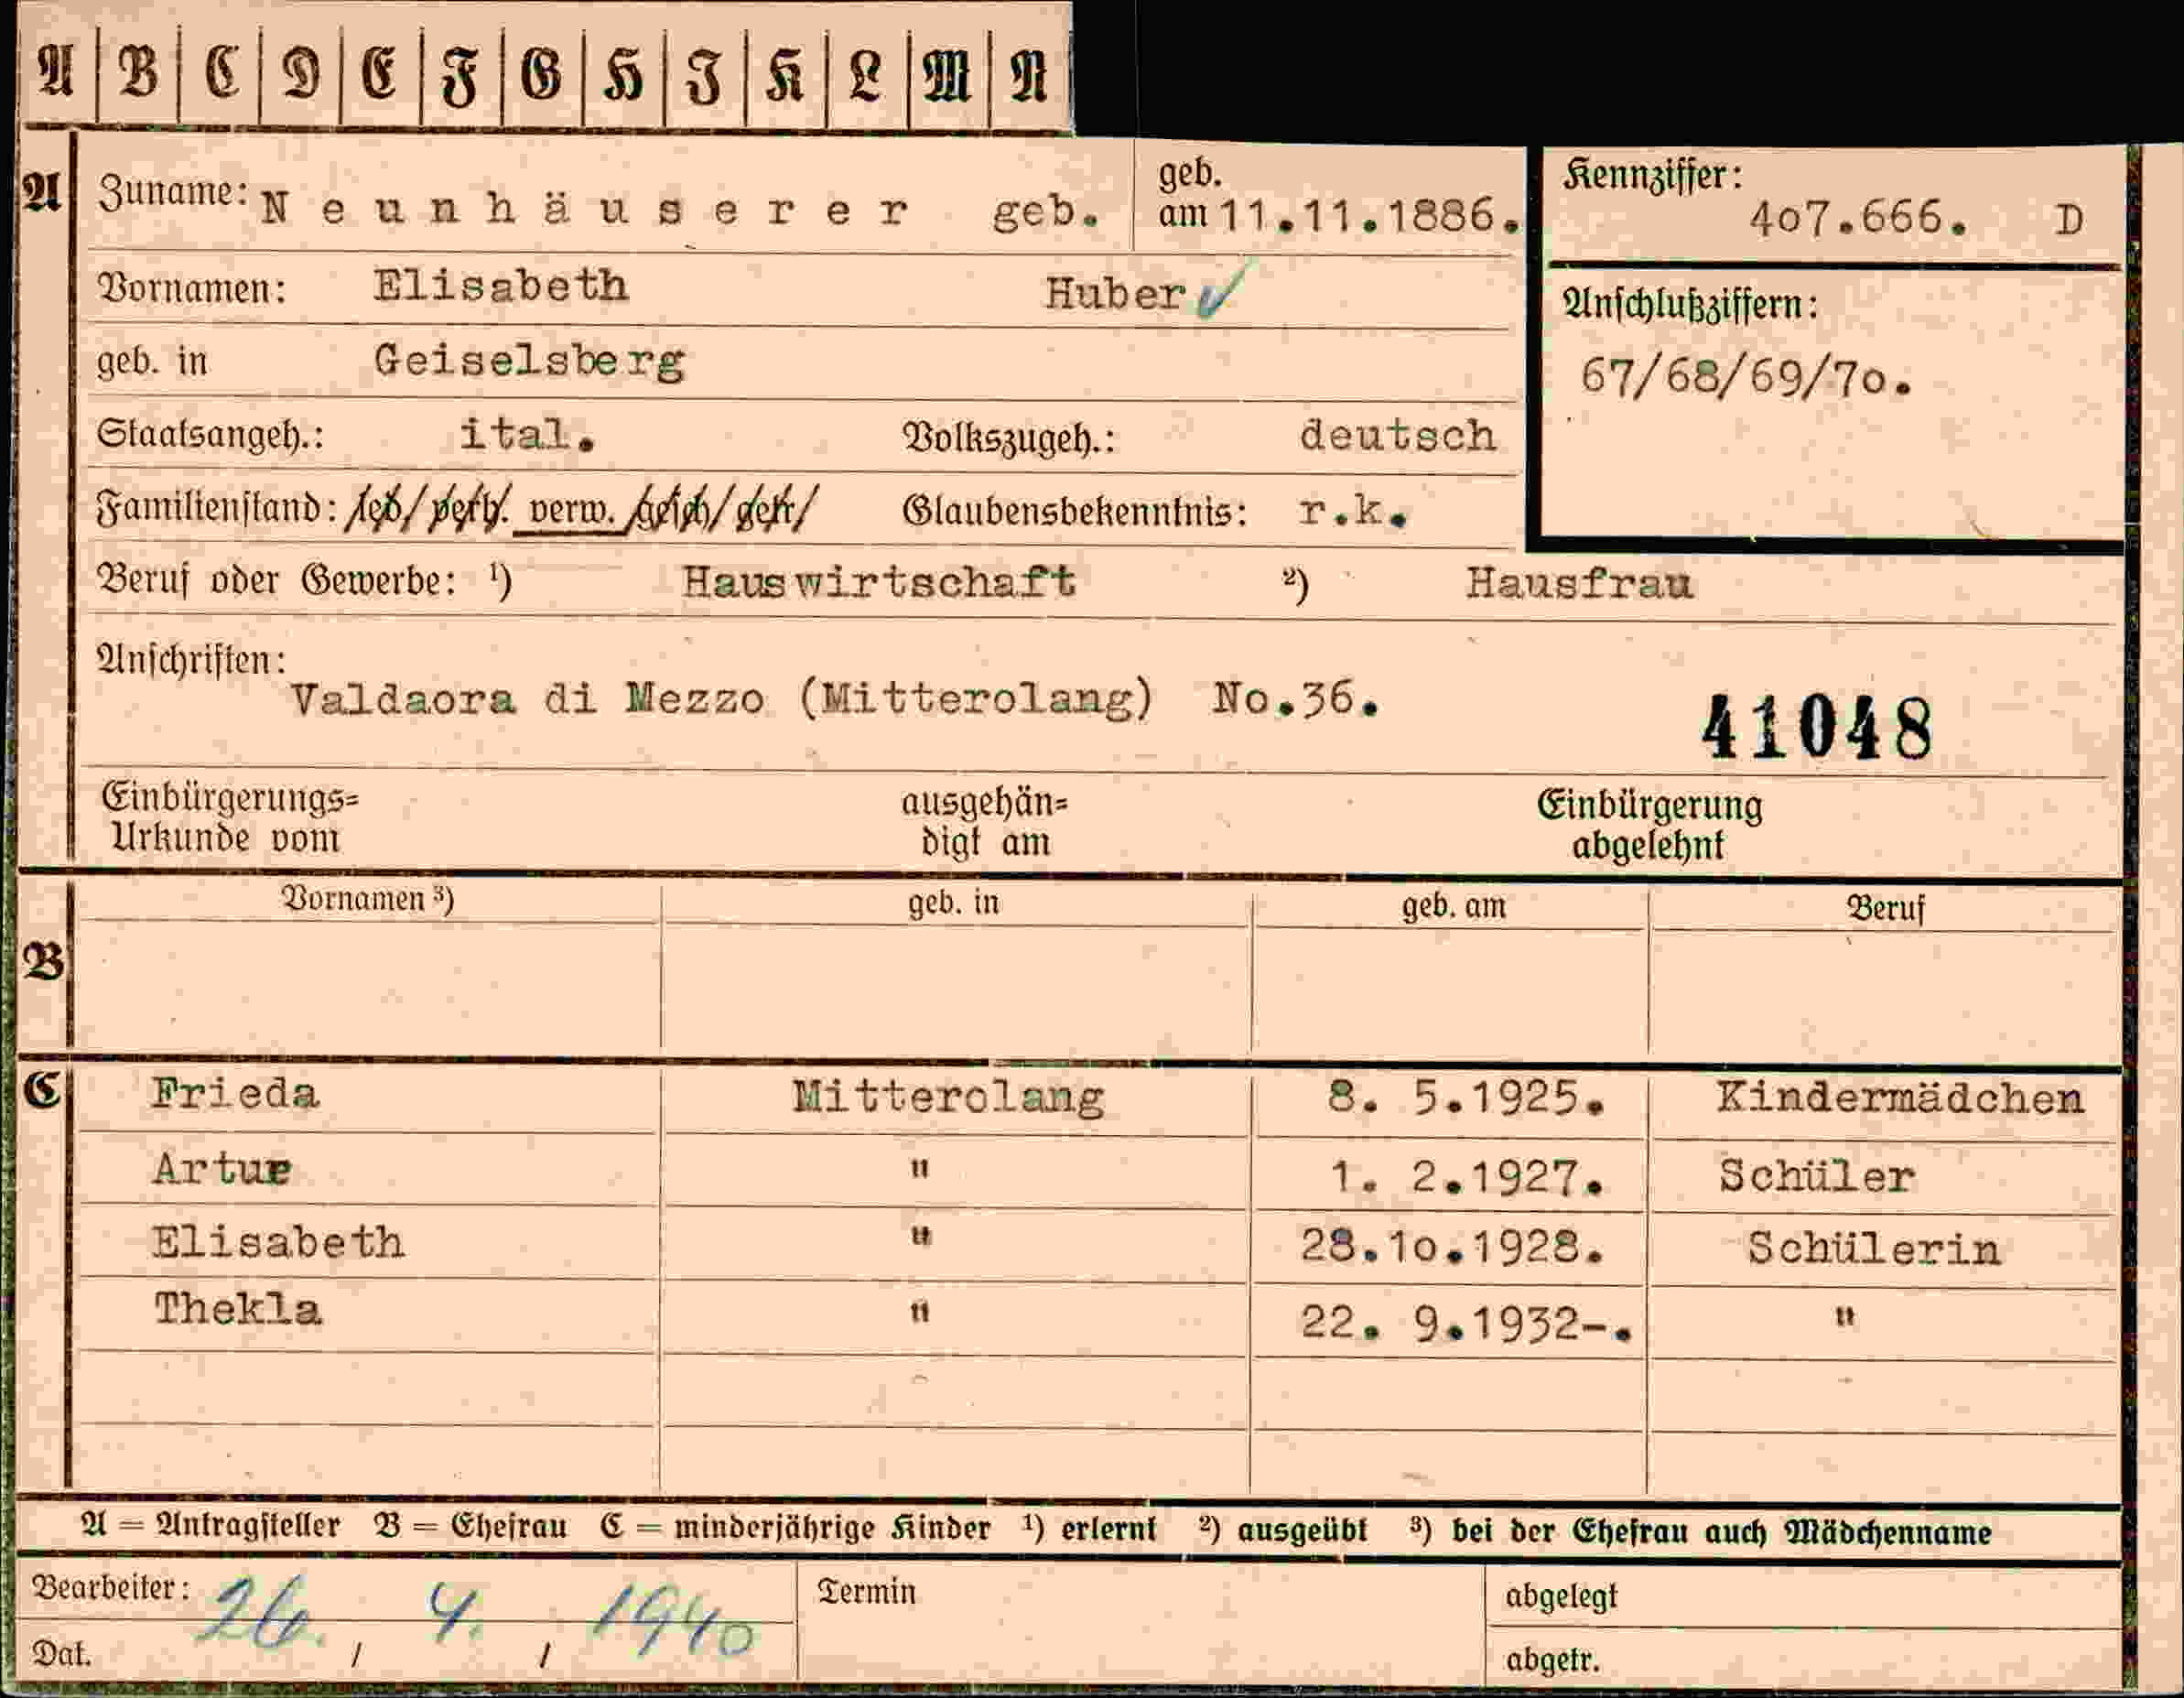 A B C D E F G H I K L M N
A Zuname: Neunhäuserer geb. geb. am 11.11.1886. Kennziffer: 4o7.666. D
Vornamen: Elisabeth Huber
Anschlußziffern:
geb. in Geiselsberg 67/68/69/7o.
Staatsangeh.: ital. Volkszugeh.: deutsch
Familienstand: led. verh. verw. gesch. getr. Glaubensbekenntnis: r.k.
Beruf oder Gewerbe: ¹) Hauswirtschaft ²) Hausfrau
Anschriften:
Valdaora di Mezzo (Mitterolang) No.36.
41048
Einbürgerungs= ausgehän= Einbürgerung
Urkunde vom digt am abgelehnt
Vornamen ³) geb. in geb. am Beruf
B
C Frieda Mitterolang 8. 5.1925. Kindermädchen
Artur " 1. 2.1927. Schüler
Elisabeth " 28.1o.1928. Schülerin
Thekla " 22. 9.1932-. "
A = Antragsteller B = Ehefrau C = minderjährige Kinder ¹) erlernt ²) ausgeübt ³) bei der Ehefrau auch Mädchenname
Bearbeiter: Termin abgelegt
26. 4. 1940
Dat. / / abgetr.